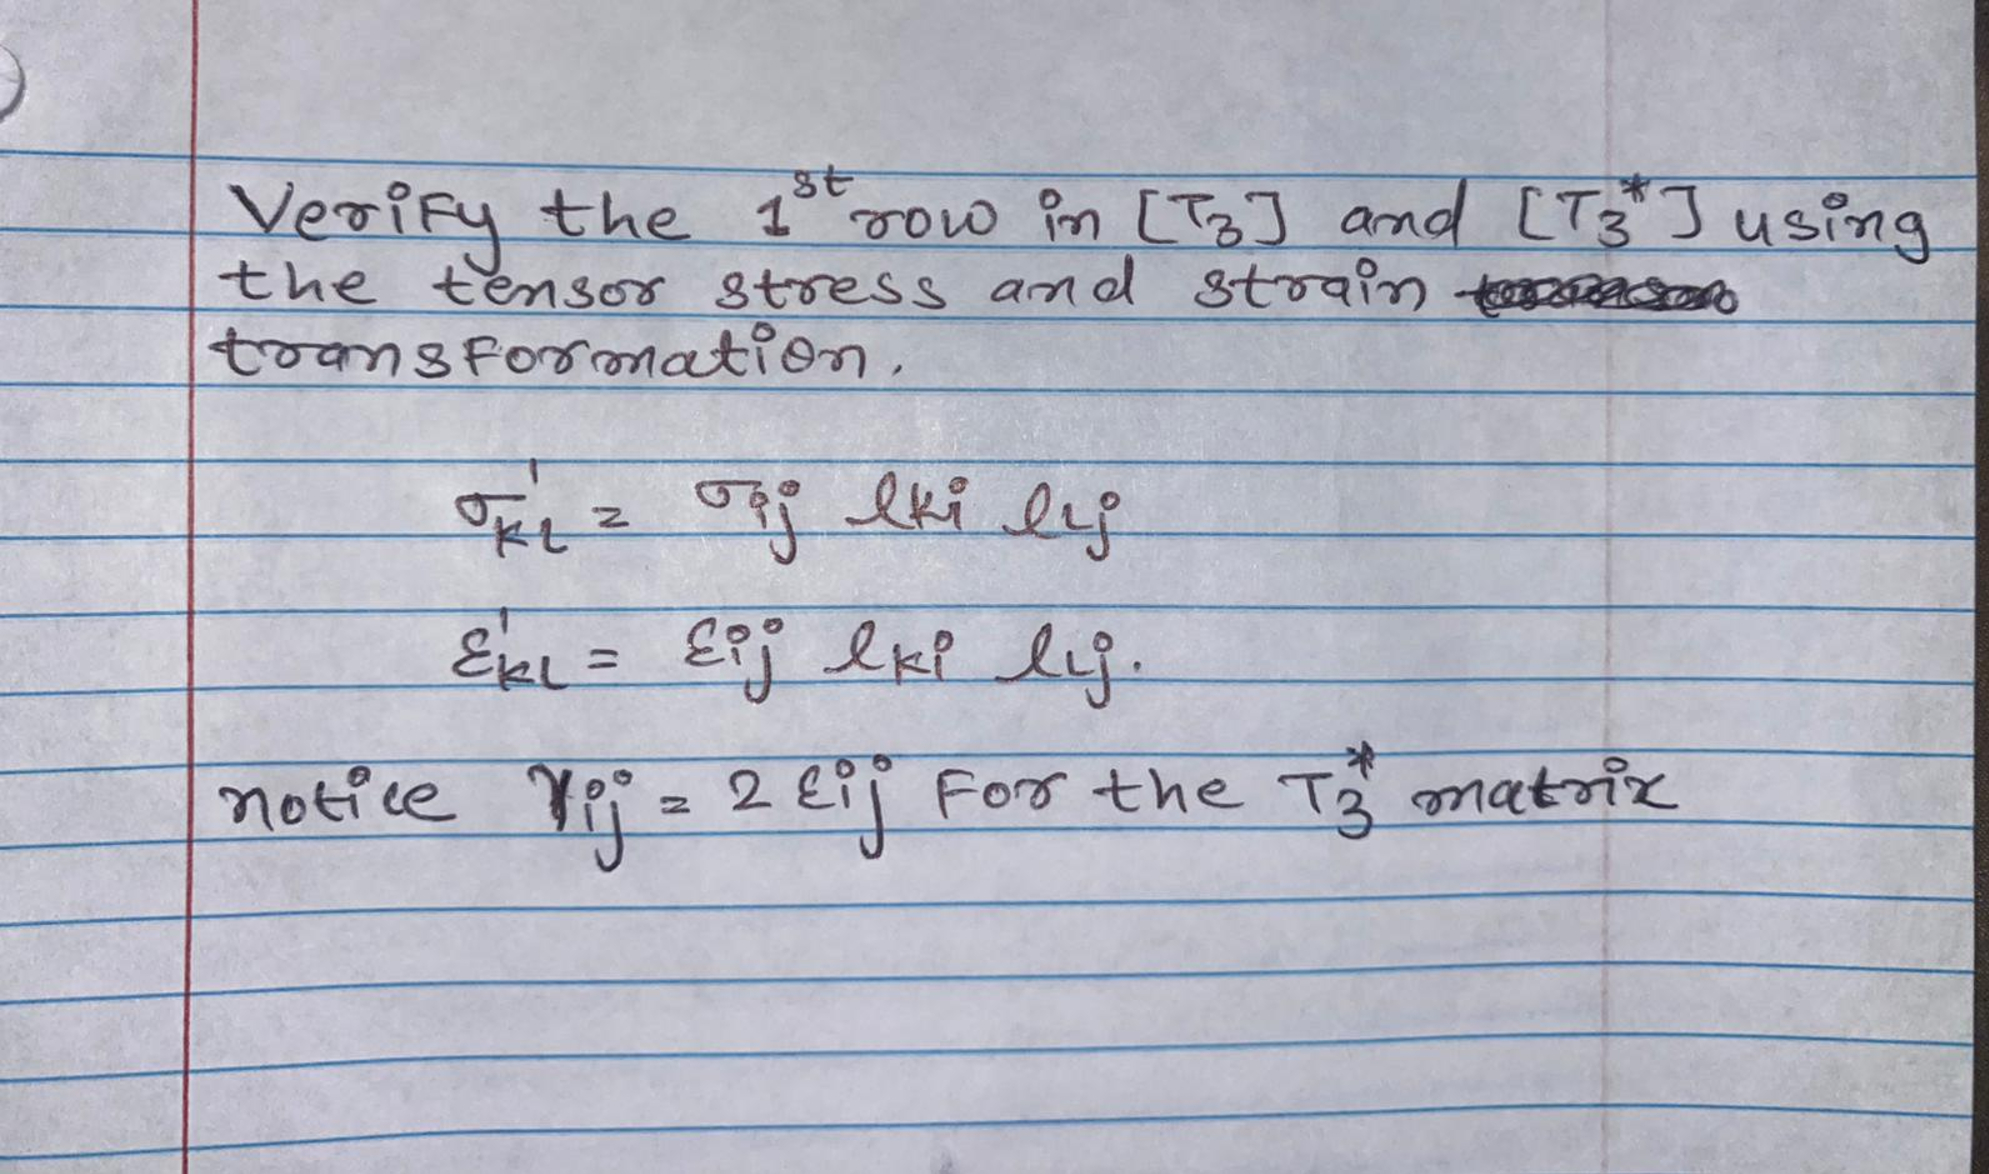 Verify the 1st row in [T3] and [T3*] using
the tensor stress and strain
transformation.
σ'kl = σij lki llj
ε'kl = εij lki llj.
notice γij = 2 εij For the T3* matrix